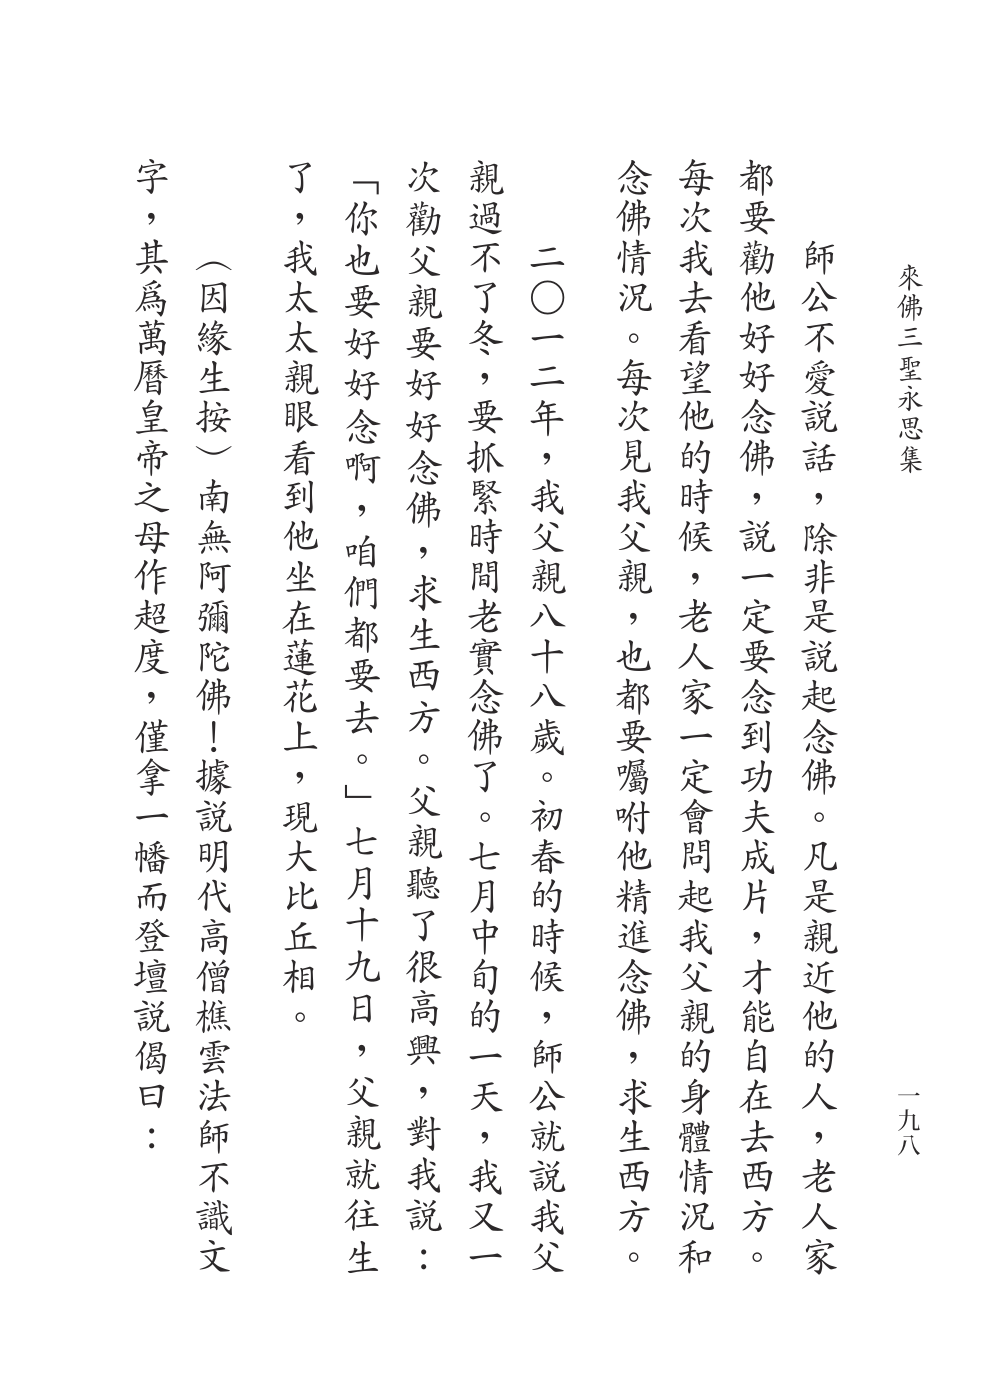 來佛三聖永思集
一九八
師公不愛説話，除非是説起念佛。凡是親近他的人，老人家
都要勸他好好念佛，説一定要念到功夫成片，才能自在去西方。
每次我去看望他的時候，老人家一定會問起我父親的身體情況和
念佛情況。每次見我父親，也都要囑咐他精進念佛，求生西方。
二〇一二年，我父親八十八歲。初春的時候，師公就説我父
親過不了冬，要抓緊時間老實念佛了。七月中旬的一天，我又一
次勸父親要好好念佛，求生西方。父親聽了很高興，對我説：
「你也要好好念啊，咱們都要去。」七月十九日，父親就往生
了，我太太親眼看到他坐在蓮花上，現大比丘相。
（因緣生按）南無阿彌陀佛！據説明代高僧樵雲法師不識文
字，其爲萬曆皇帝之母作超度，僅拿一幡而登壇説偈曰：